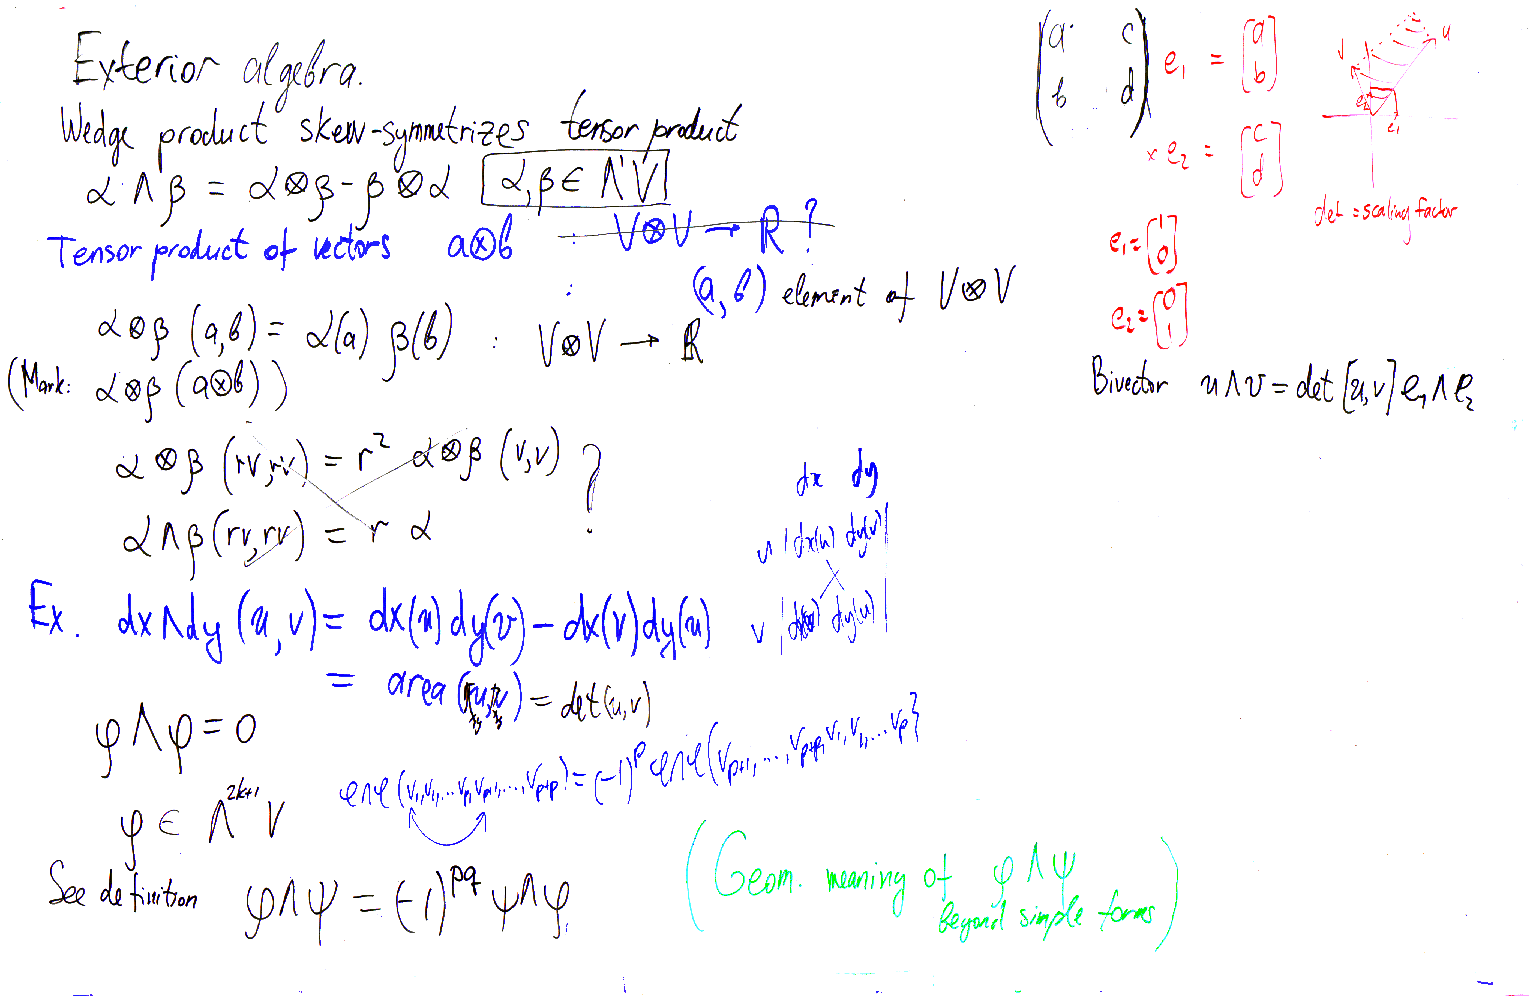 Exterior algebra.
Wedge product skew-symmetrizes tensor product
α ∧ β = α⊗β - β⊗α [α,β ∈ Λ¹V]
Tensor product of vectors a⊗b : V⊗V → ℝ ?
(a, b) element of V⊗V
α⊗β (a,b) = α(a) β(b) : V⊗V → ℝ
(Mark: α⊗β (a⊗b))
α⊗β (rv,rv) = r² α⊗β (v,v) ?
α∧β (rv,rv) = r α
dx dy
u | dx(u) dy(v) |
v | dy(u) |
Ex. dx∧dy (u,v) = dx(u) dy(v) - dx(v) dy(u)
= area (u,v) = det(u,v)
φ∧φ = 0
φ∧φ(v₁,v₂,...v_p,v_{p+1},...,v_{p+p}) = (-1)^p φ∧φ(v_{p+1},...,v_{p+p},v₁,v₂,...v_p)
φ ∈ Λ^{2k+1} V
See definition φ∧ψ = (-1)^{pq} ψ∧φ
(Geom. meaning of φ∧ψ
beyond simple forms)
(a c
b d) e₁ = [a
b]
× e₂ = [c
d]
e₁ = [1
0]
e₂ = [0
1]
v
u
e₂
e₁
det = scaling factor
Bivector u∧v = det[u,v] e₁∧e₂